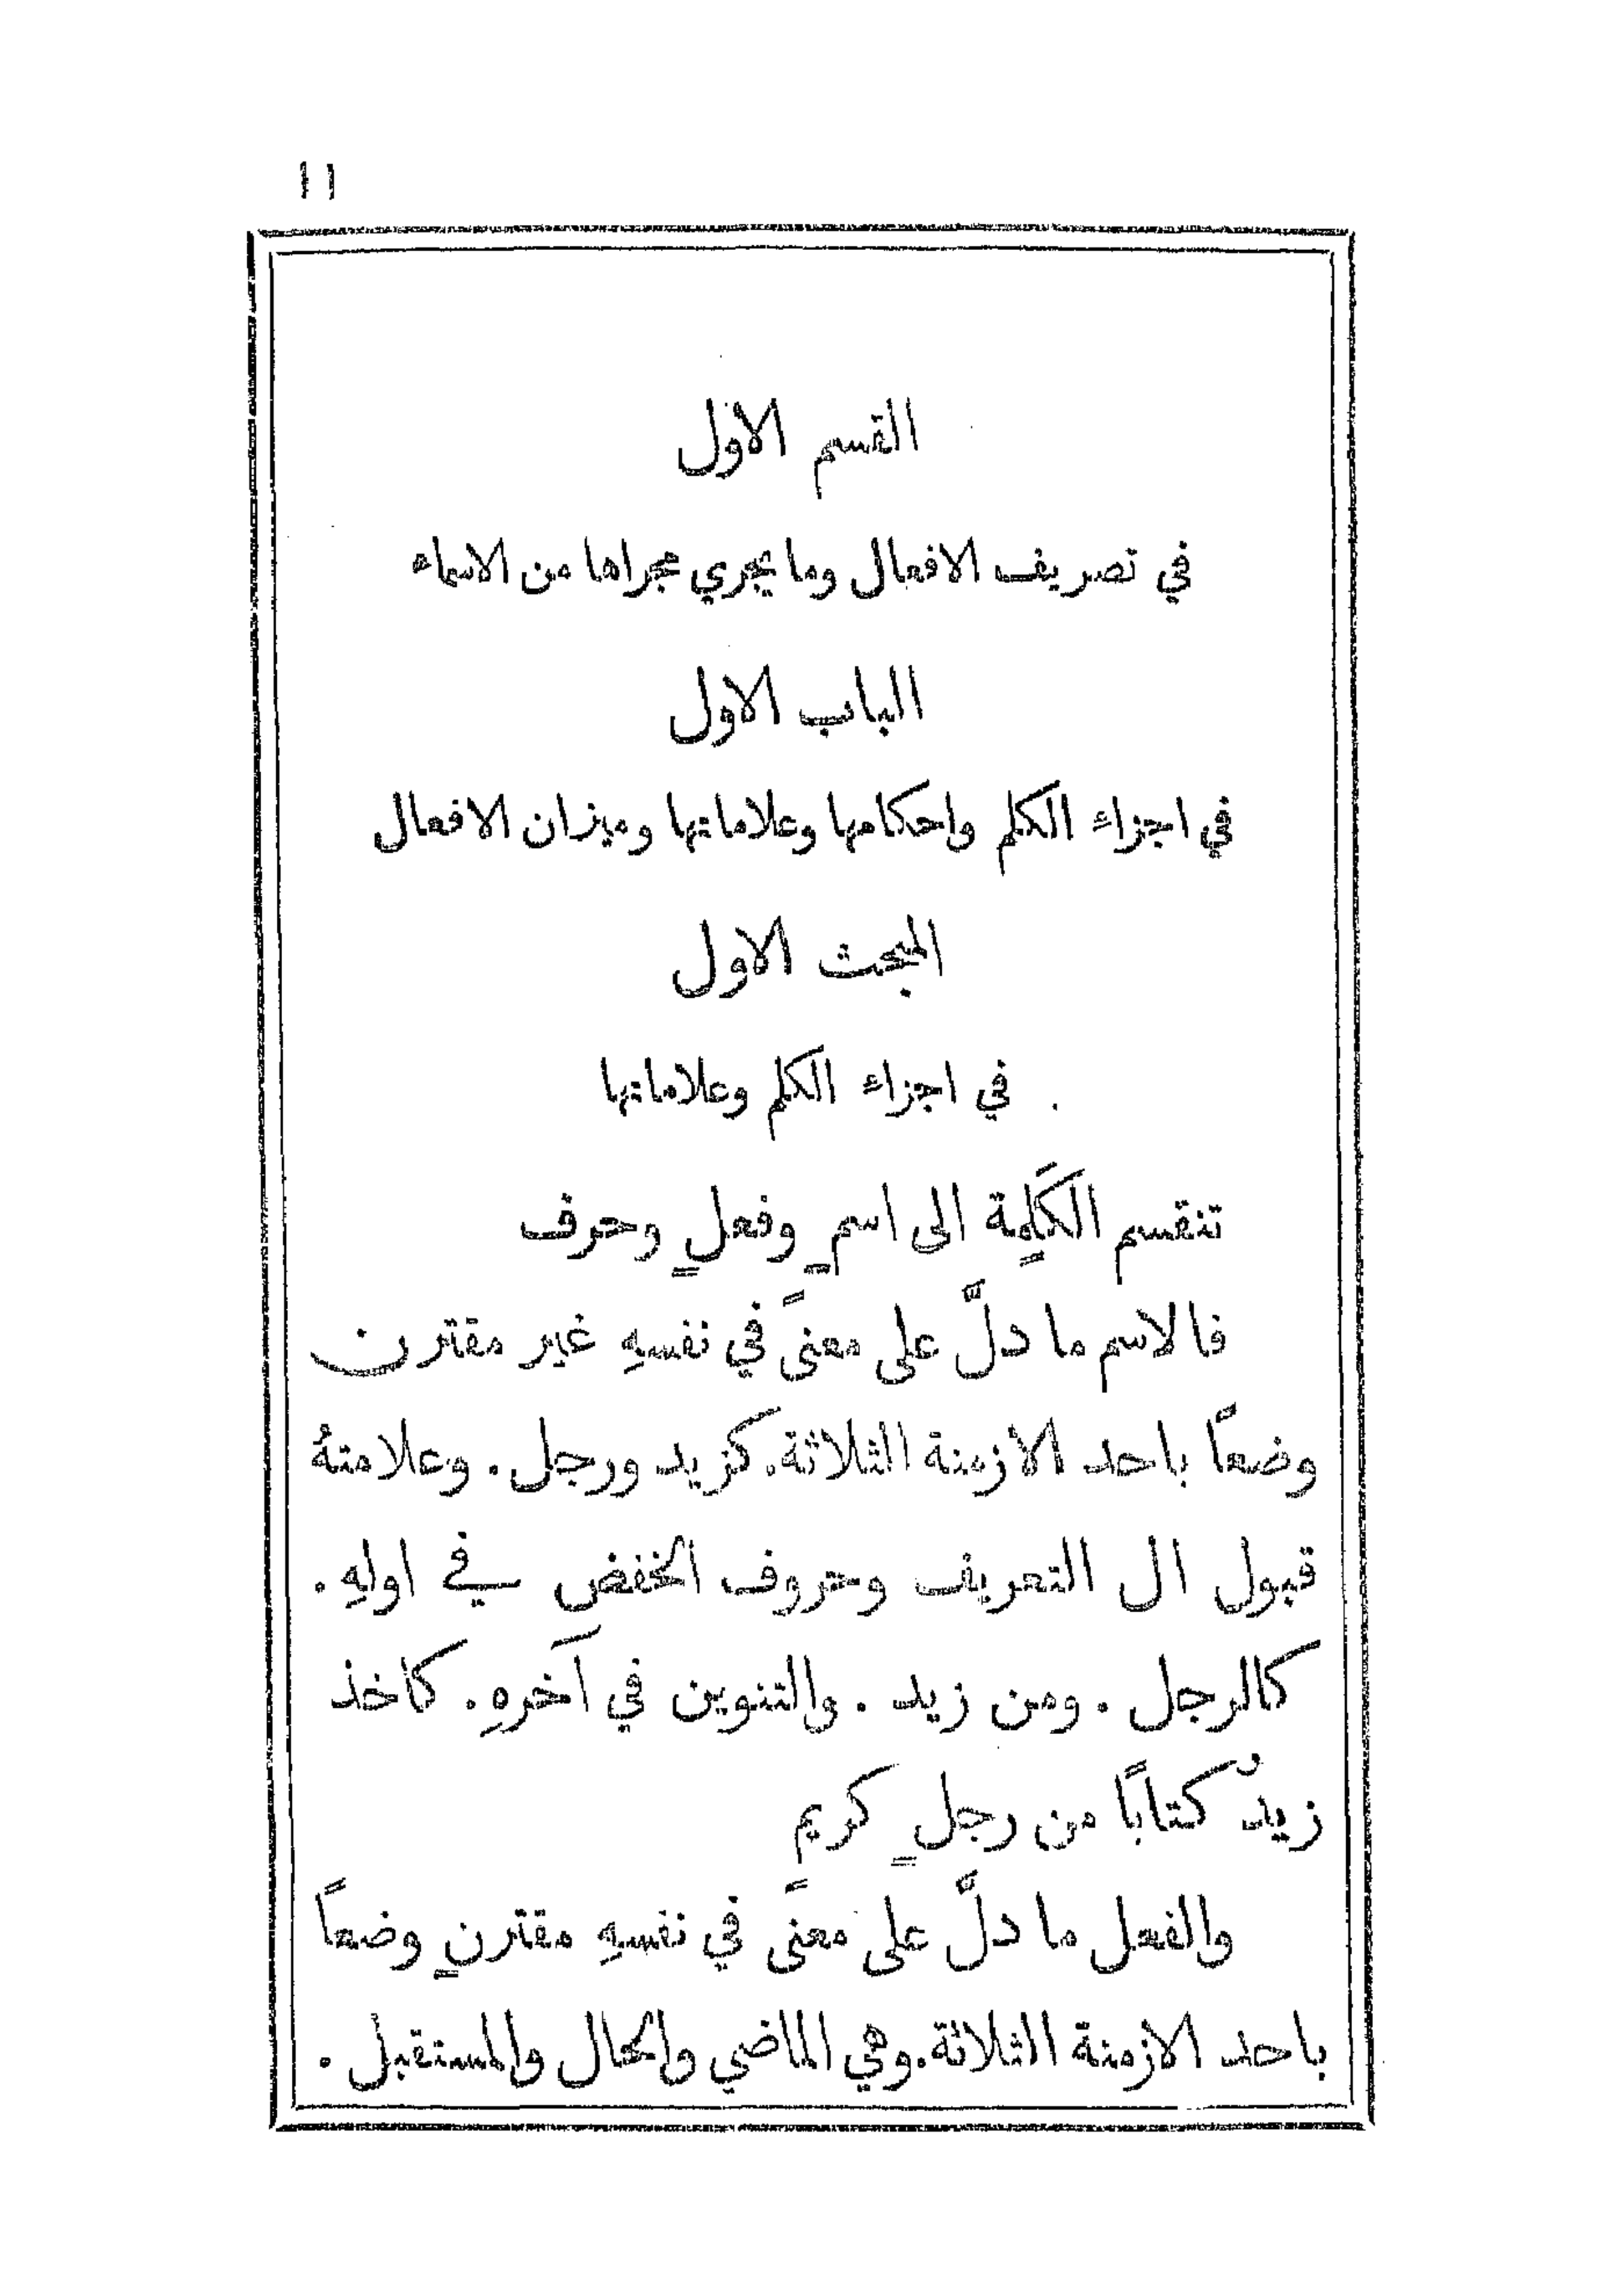 ١١
القسم الاول
في تصريف الافعال وما يجري مجراها من الاسماء
الباب الاول
في اجزاء الكلم واحكامها وعلاماتها وميزان الافعال
المبحث الاول
في اجزاء الكلم وعلاماتها
تنقسم الكَلِمة الى اسمٍ وفعلٍ وحرف
فالاسم ما دلَّ على معنًى في نفسهِ غير مقترن
وضعًا باحد الازمنة الثلاثة. كزيد ورجل. وعلامتهُ
قبول ال التعريف وحروف الخفضِ في اولهِ.
كالرجل. ومن زيد. والتنوين في آخرهِ. كاخذ
زيدٌ كتابًا من رجلٍ كريمٍ
والفعل ما دلَّ على معنًى في نفسهِ مقترنٍ وضعًا
باحد الازمنة الثلاثة. وهي الماضي والحال والمستقبل.